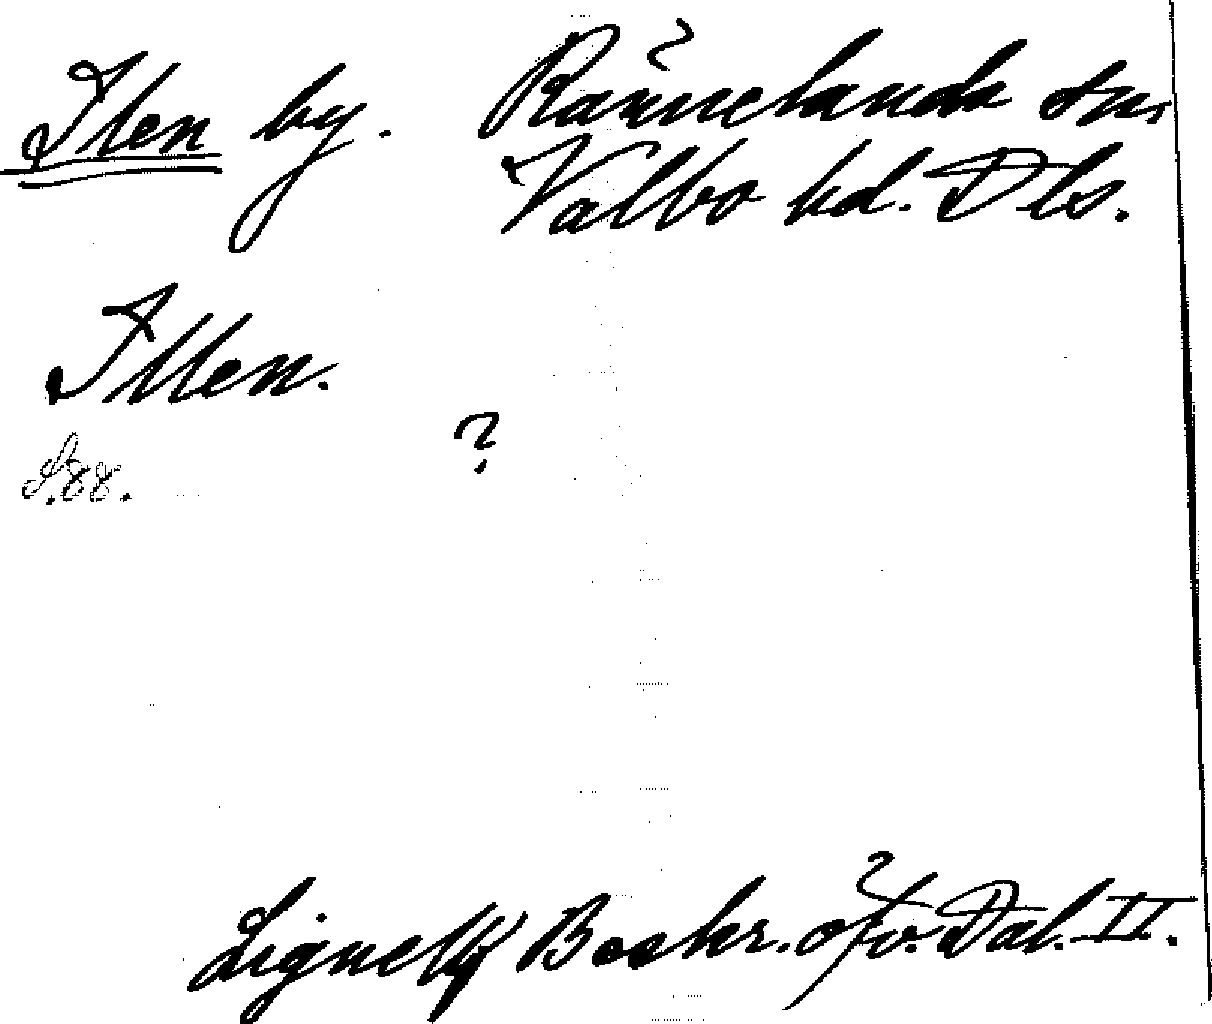 Ilen by. Rännelanda sn.
Valbo hd. Dls.
Illen.
?
S. 88.
Lignell, Beskr. öfv. Dal. II.